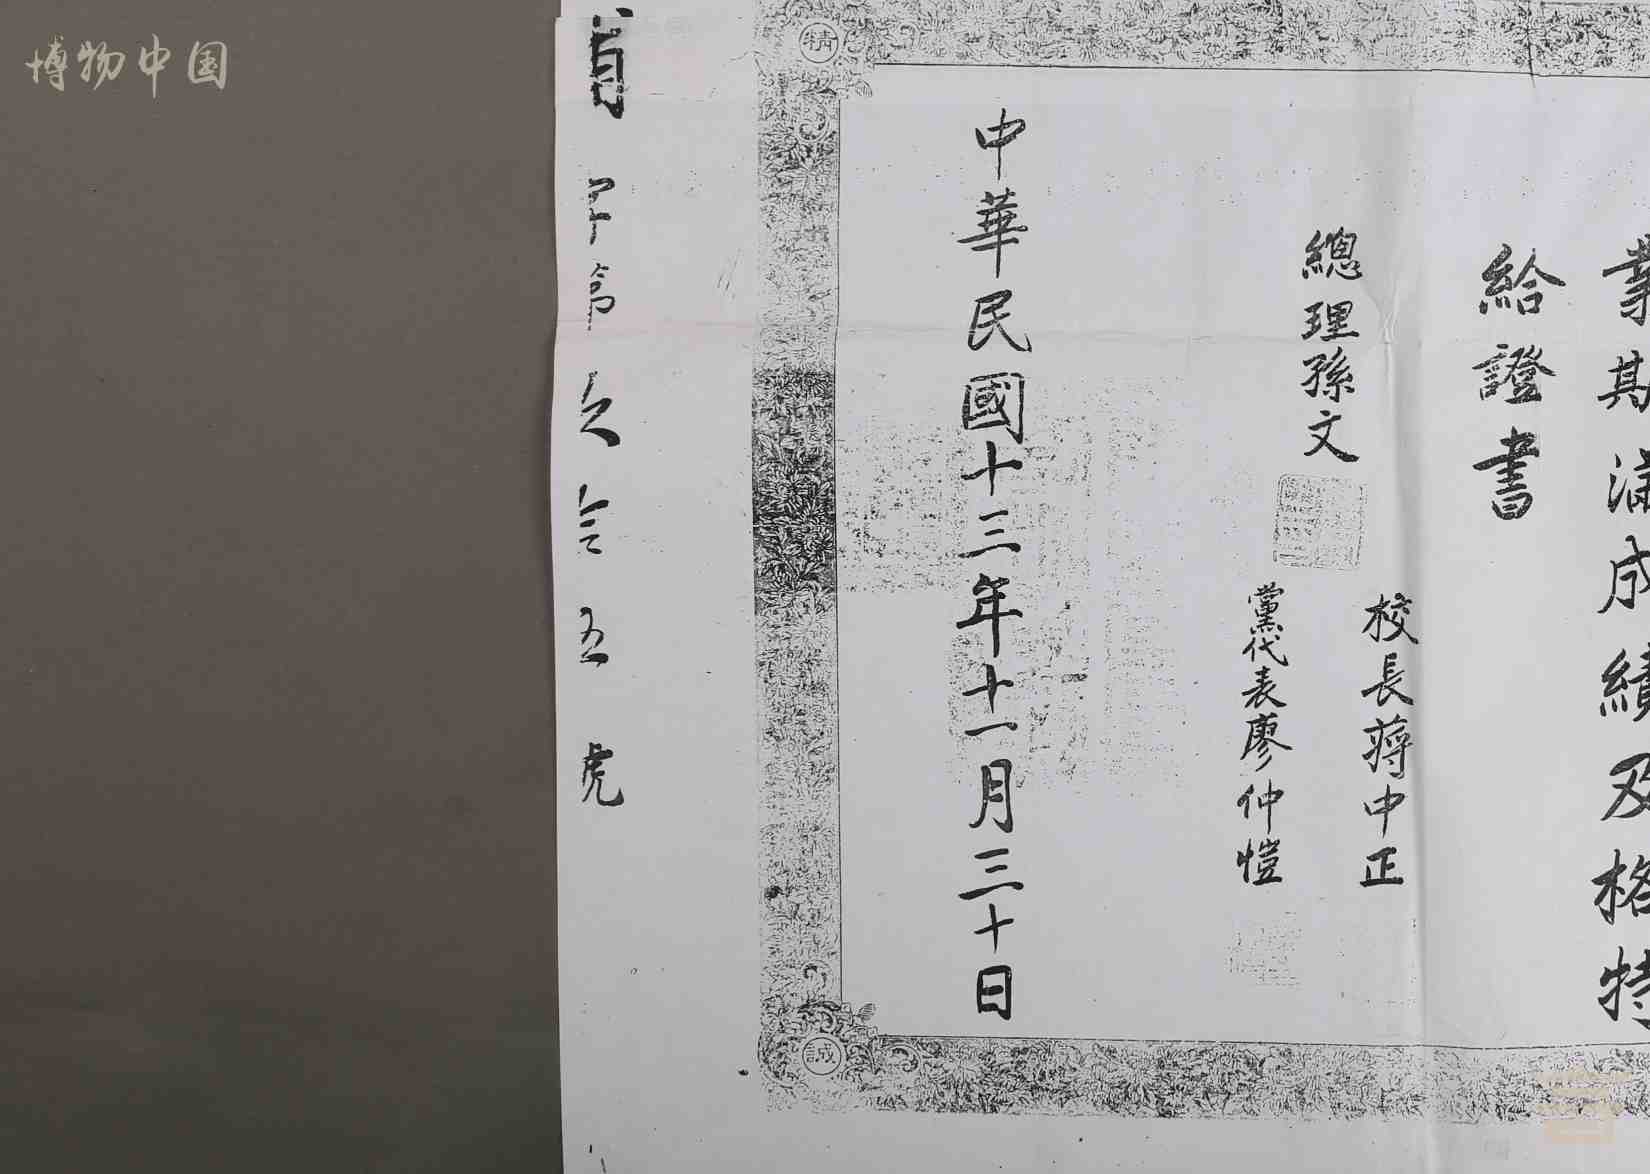 博物中国
精
業期滿成績及格特
給證書
校長蔣中正
總理孫文
黨代表廖仲愷
中華民國十三年十一月三十日
誠
字第
五
號